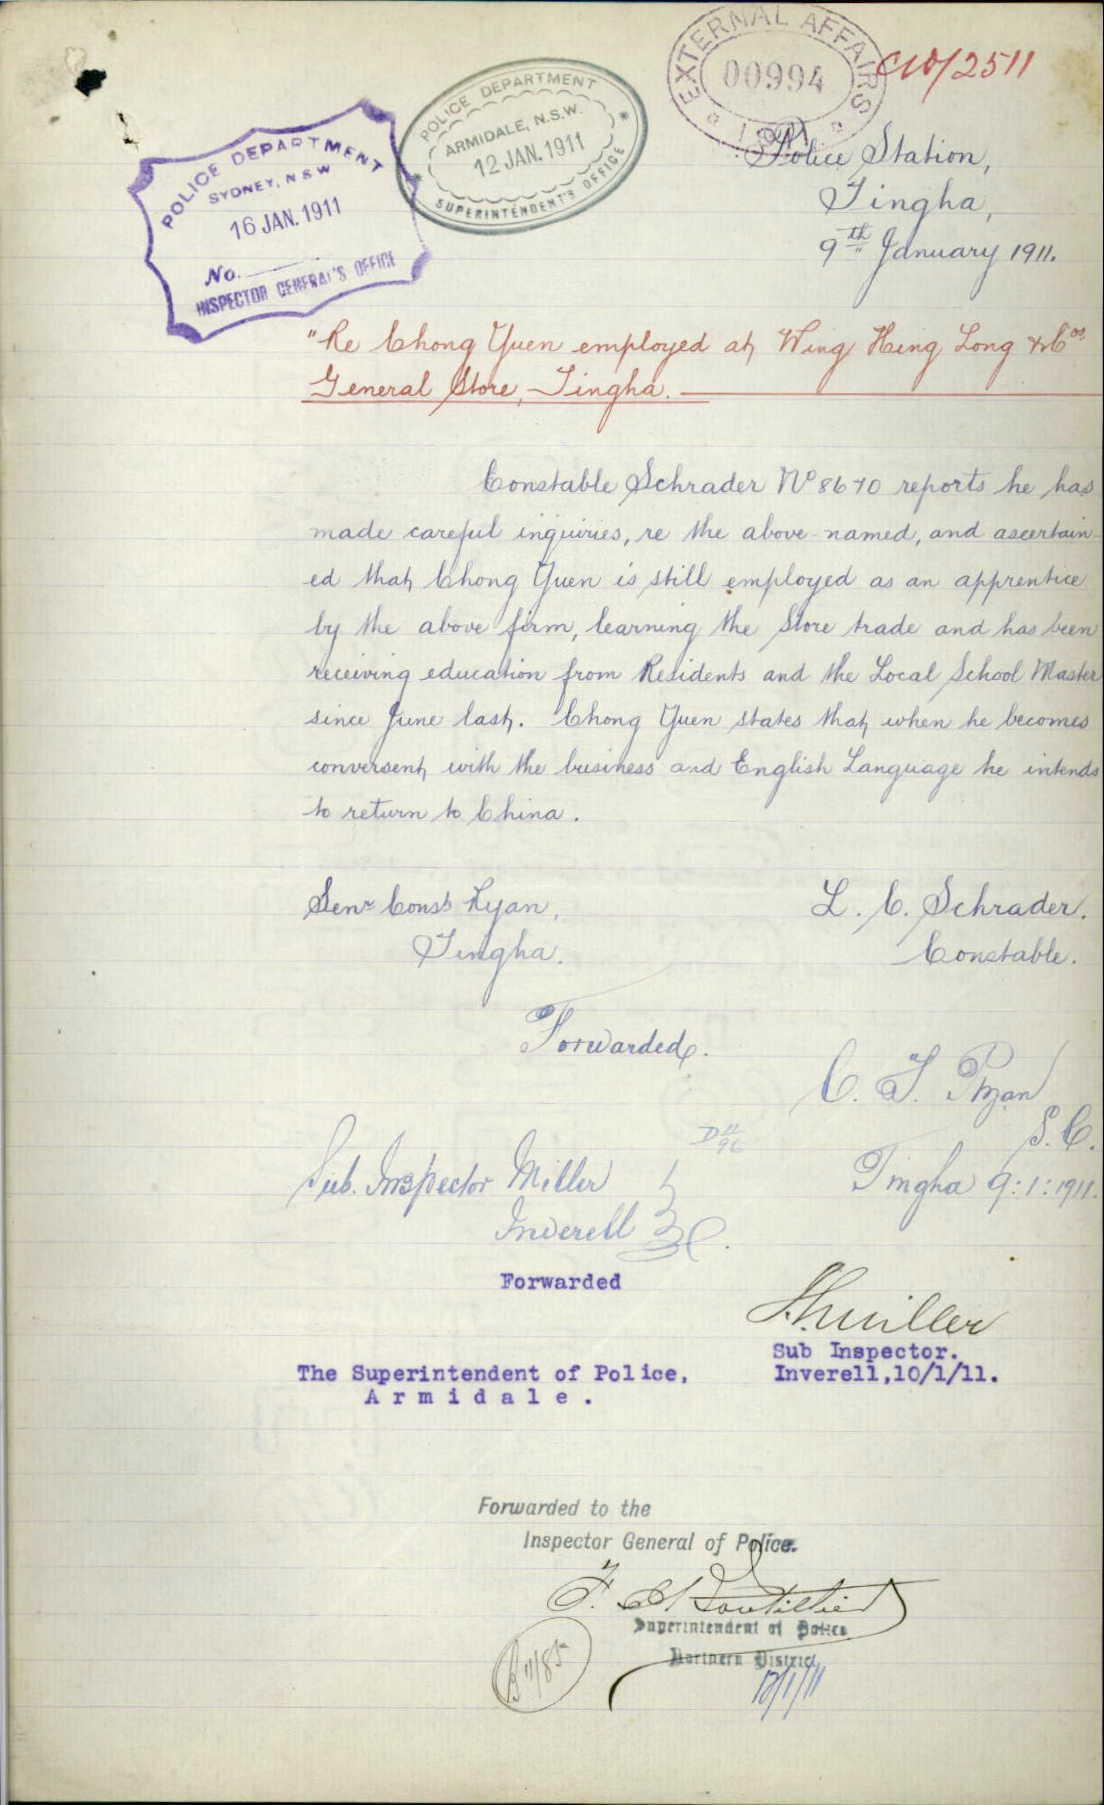 EXTERNAL AFFAIRS
00994
C10/2511
POLICE DEPARTMENT
ARMIDALE, N.S.W.
12 JAN. 1911
SUPERINTENDENT'S OFFICE
POLICE DEPARTMENT
SYDNEY, N S W
16 JAN. 1911
No.
INSPECTOR GENERAL'S OFFICE
Police Station,
Tingha,
9th January 1911.
"Re Chong Yuen employed at Wing Hing Long & Cos
General Store, Tingha.
Constable Schrader No 8670 reports he has
made careful inquiries, re the above named, and ascertain-
ed that Chong Yuen is still employed as an apprentice
by the above firm, learning the Store trade and has been
receiving education from Residents and the Local School Master
since June last. Chong Yuen states that when he becomes
conversent with the business and English Language he intends
to return to China.
Senr Const Ryan,
Tingha.
L. C. Schrader.
Constable.
Forwarded.
C. F. Ryan
S.C.
Tingha 9:1:1911.
D11/96
Sub. Inspector Miller
Inverell
Forwarded
Miller
Sub Inspector.
Inverell,10/1/11.
The Superintendent of Police,
Armidale.
Forwarded to the
Inspector General of Police.
Superintendent of Police
Northern District
12/1/11
B11/85